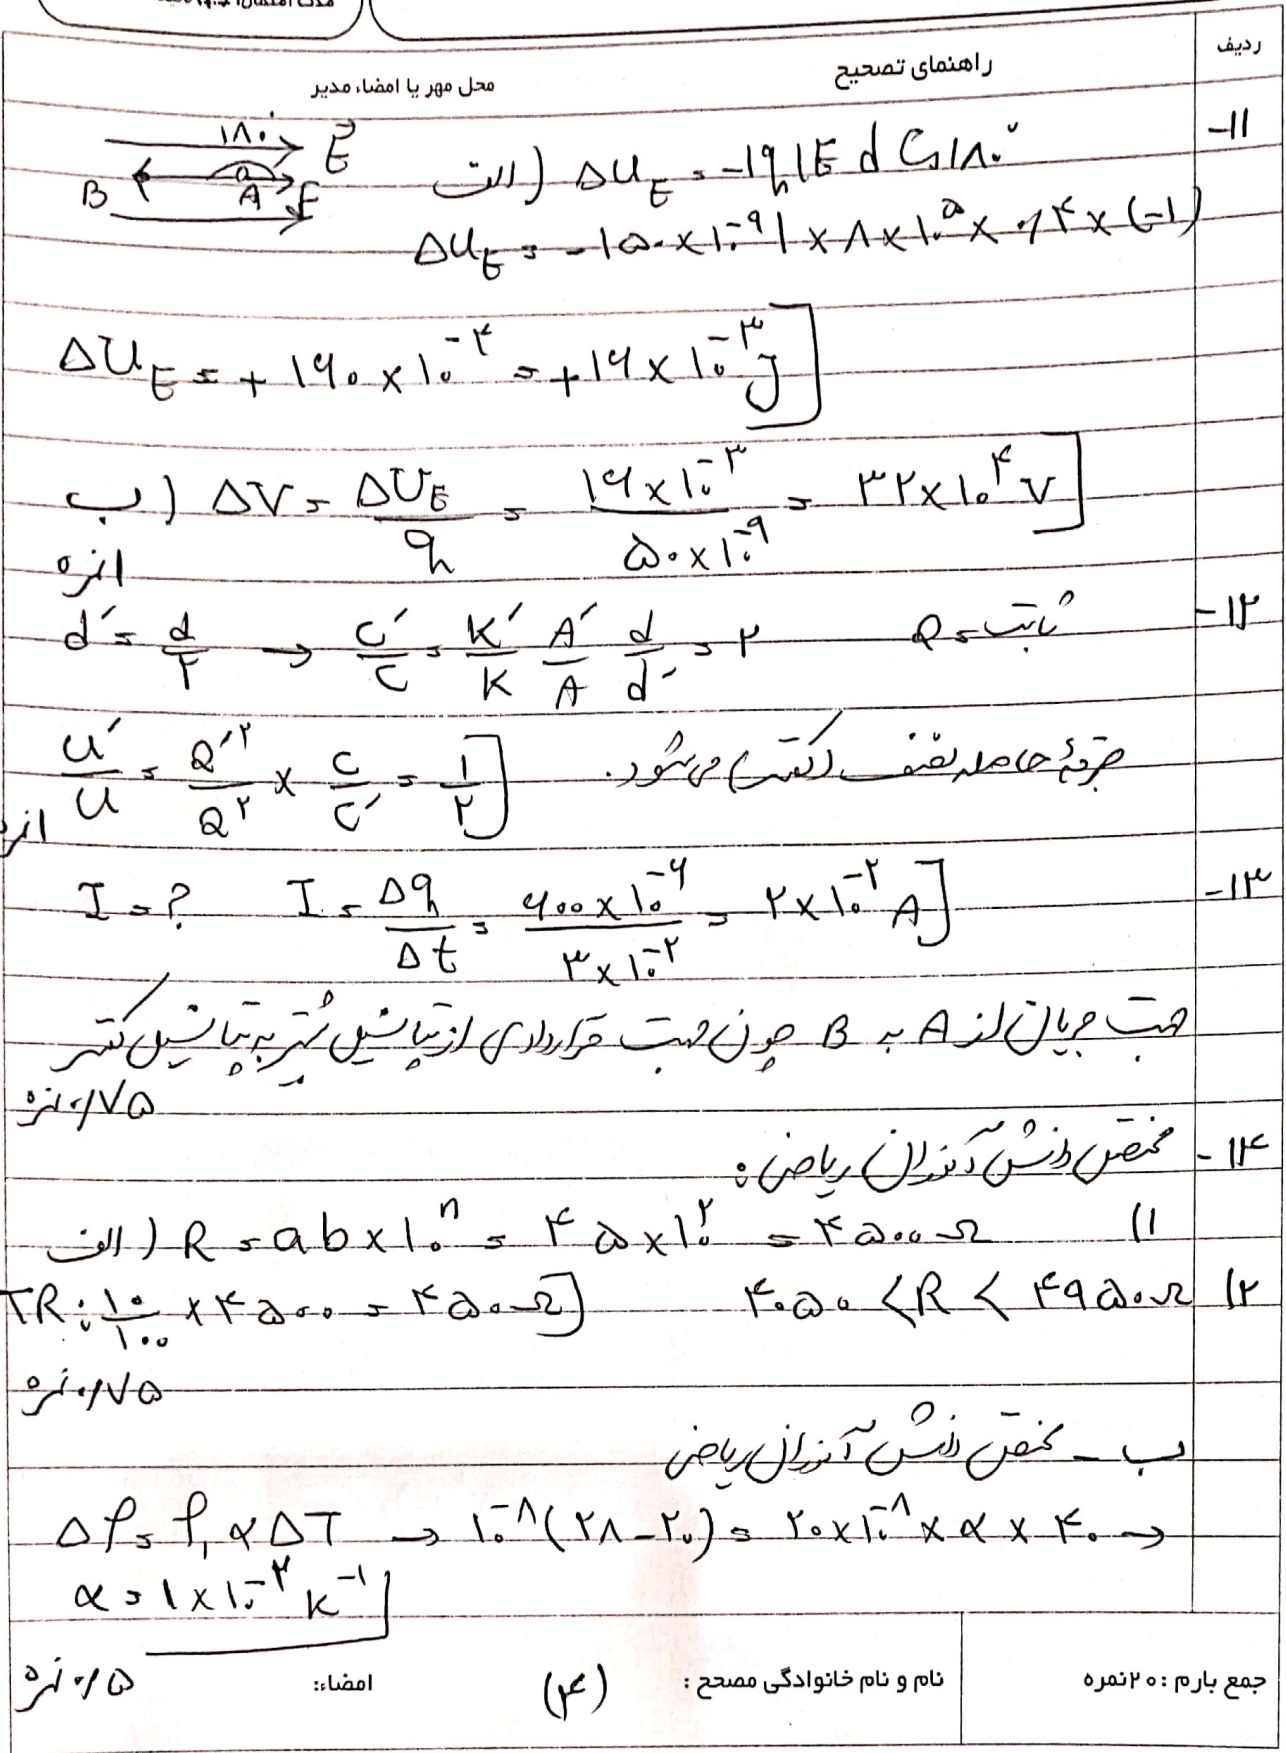 ردیف
راهنمای تصحیح
محل مهر یا امضاء مدیر
۱۱-
۱۸۰° E
B A F
الف) ΔU_E = -|q|E d Cos۱۸۰°
ΔU_E = -|۵۰×۱۰^-۹|×۸×۱۰^۵×۰/۴×(-۱)
ΔU_E = +۱۶۰×۱۰^-۴ = +۱۶×۱۰^-۳ J
ب) ΔV = ΔU_E / q = ۱۶×۱۰^-۳ / ۵۰×۱۰^-۹ = ۳۲×۱۰^۴ V
۱نمره
۱۲- ثابت = Q
d´ = d/۲ → C´/C = K´/K A´/A d/d´ = ۲
جرقهٔ حاصله نصف (کمتر) می‌شود.
U´/U = Q´^۲/Q^۲ × C/C´ = ۱/۲
۱۳-
I = ? I = Δq/Δt = ۶۰۰×۱۰^-۶ / ۳×۱۰^-۲ = ۲×۱۰^-۲ A
جهت جریان از A به B چون جهت قراردادی از پتانسیل بیشتر به پتانسیل کمتر
۰/۷۵ نمره
۱۴- مختص دانش آموزان ریاضی:
الف) R = ab×۱۰^n = ۴۵×۱۰^۲ = ۴۵۰۰ Ω (۱
TR: ۱۰/۱۰۰ ×۴۵۰۰ = ۴۵۰ Ω ۴۰۵۰ < R < ۴۹۵۰ Ω (۲
۰/۷۵ نمره
ب - مختص دانش آموزان ریاضی
Δρ = ρ₁ α ΔT → ۱۰^-۸(۲۸-۲۰) = ۲۰×۱۰^-۸×α×۴۰ →
α = ۱×۱۰^-۲ K^-۱
۰/۵ نمره
جمع بارم : ۲۰نمره
نام و نام خانوادگی مصحح :
(۴)
امضاء: